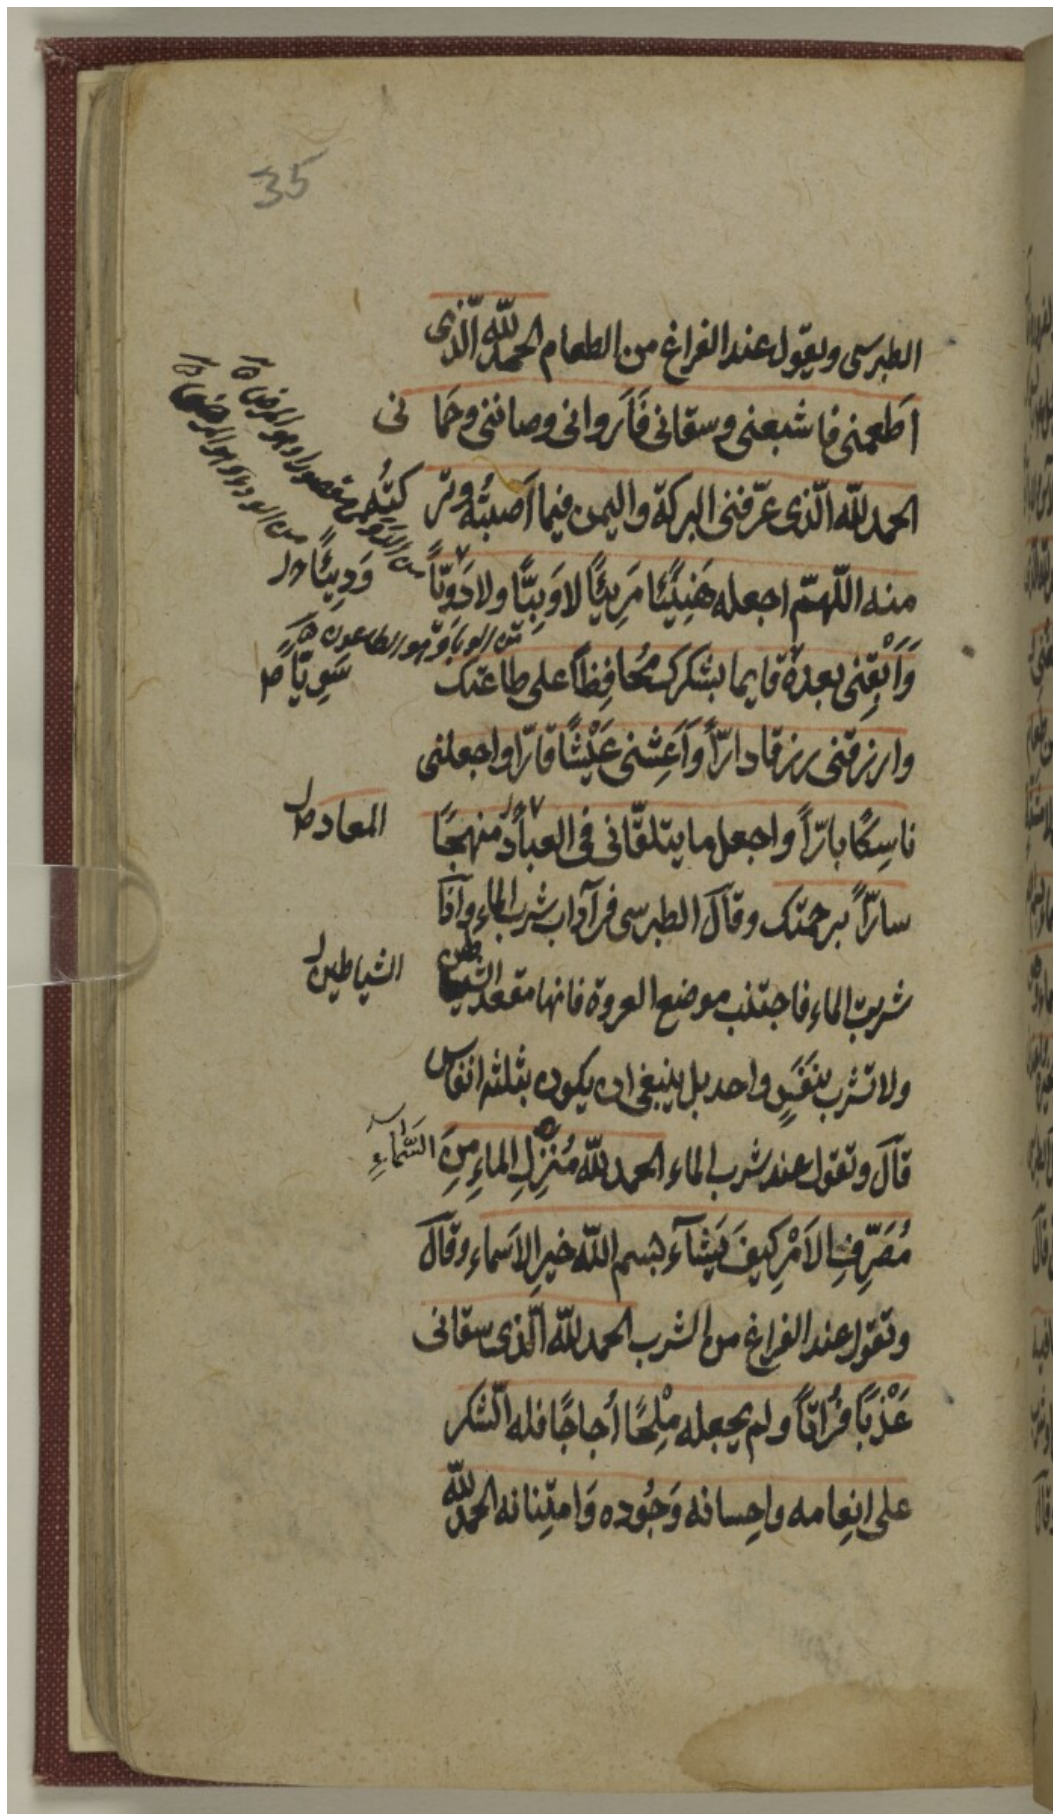 35
الطبرسى ويقول عند الفراغ من الطعام الحمد لله الّذى
اَطعمنى فاشبعنى وسقانى فَاَروانى وصاننى وحَمَا نى
الحمد لله الّذى عرّفنى البركة واليمن فيما اَصبتُه وتر كتُه
منه اللّهمّ اجعله هَنِيئًا مَرِيئًا لا وَبِيًّا ولا دَوِيًّا
وَدِيئًا
وَاَبْقِنى بعده قايما بشكرك مُحافِظًا على طاعتك
سَوِيًّا
وارزقنى رزقا دارّاً وَاَعِشنى عَيْشًا قارّا واجعلنى
ناسِكًا بارّاً واجعل ما يتلقّانى فى العباد منهجًا
المعاد
سارّاً برحمتك وقاَل الطبرسى فى آداب شرب الماء واذا
شربت الماء فاجتنب موضع العروة فانها مقعد الشيطان
الشياطين
ولا تشرب بنَفَسٍ واحد بل ينبغى ان يكون بثلثه انفاس
قاَل وتقول عند شرب الماء الحمد لله مُنَزِّلِ الماءِ مِنَ السَّماءِ
مُصَرِّفِ الاَمْرِ كيفَ يَشآء بسم الله خيرِ الاَسماء وقاَل
وتقول عند الفراغ من الشرب الحمد لله الّذى سقانى
عَذْبًا فُراتاً ولم يجعله مِلْحًا اُجاجًا فله الشكر
على اِنعامه واِحسانه وَجُوده وَامتِنانه الحمد لله